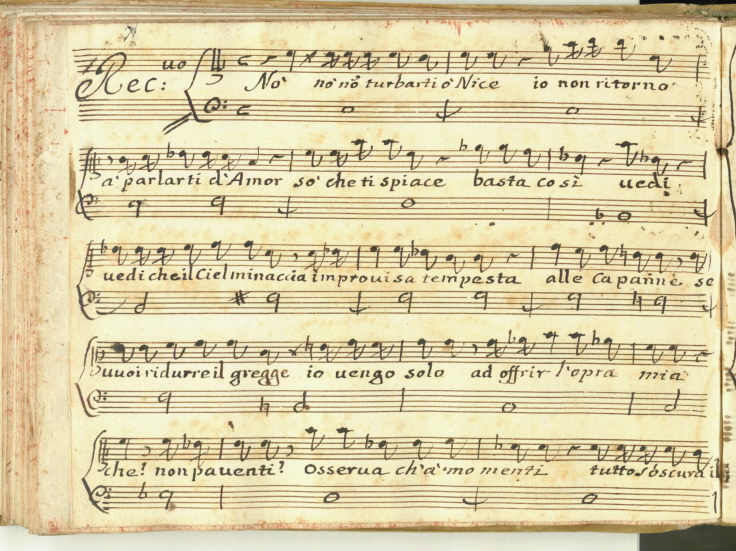 Rec: uo No nò nò turbarti ò Nice io non ritorno
à parlarti d'Amor sò che ti spiace basta così uedi
uedi che il Ciel minaccia improuisa tempesta alle Capanne se
uuoi ridurre il gregge io uengo solo ad offrir l'opra mia
che! non pauenti? Osserua ch'à momenti tutto s'oscura il